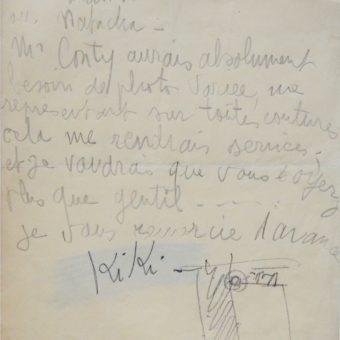 Natacha
Mr Conty aurais absolument
besoin de photo variée, me
représentant sur toutes coutures
cela me rendrais services,
et je voudrais que vous soyez
plus que gentil - - - -
je vous remercie d'avance
KiKi -